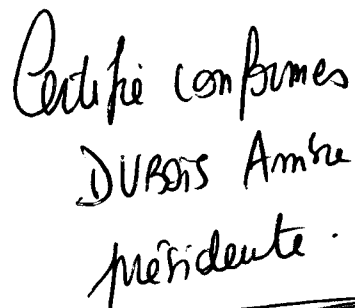 Certifié conformes
DUBOIS Ambre
présidente.